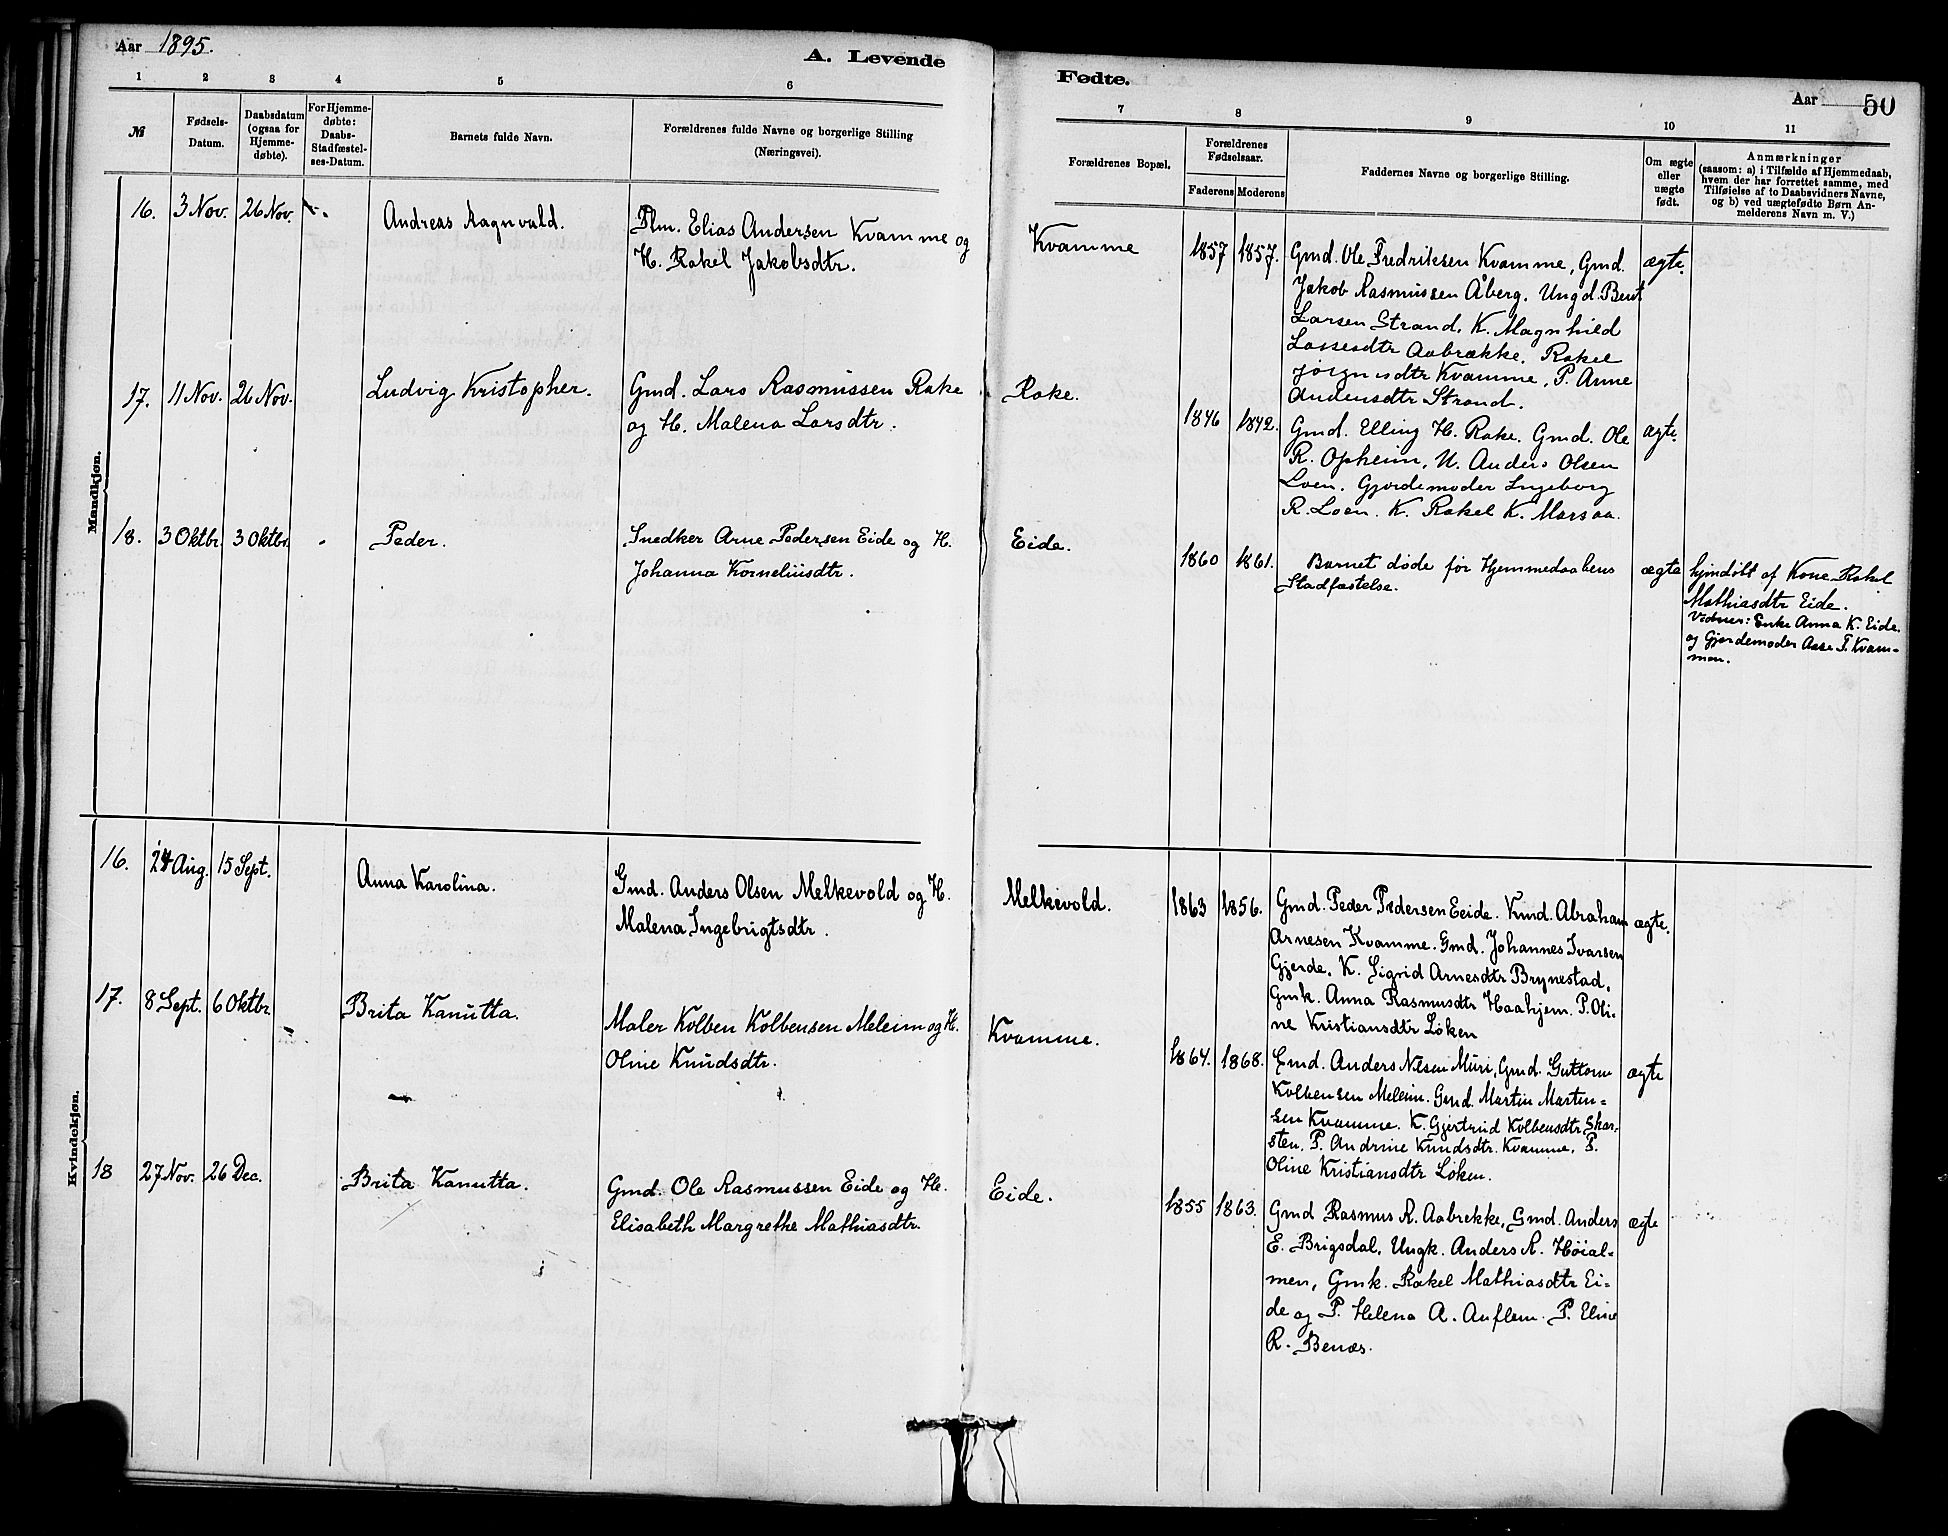 Aar 1895.
A. Levende
Fødte.
Aar 50
1 2 3 4 5 6 7 8 9 10 11
№
Fødsels-
Datum.
Daabsdatum
(ogsaa for
Hjemme-
døbte).
For Hjemme-
døbte:
Daabs-
Stadfæstel-
ses-Datum.
Barnets fulde Navn.
Forældrenes fulde Navne og borgerlige Stilling
(Næringsvei).
Forældrenes Bopæl.
Forældrenes
Fødselsaar.
Faderens Moderens
Faddernes Navne og borgerlige Stilling.
Om ægte
eller
uægte
født.
Anmærkninger
(saasom: a) i Tilfælde af Hjemmedaab,
hvem der har forrettet samme, med
Tilføielse af to Daabsvidners Navne,
og b) ved uægtefødte Børn An-
melderens Navn m. V.)
Mandkjøn.
16. 3 Nov. 26 Nov.
Andreas Ragnvald.
Plm. Elias Andersen Kvamme og
H. Rakel Jakobsdtr.
Kvamme
1857 1857.
Gmd. Ole Fredriksen Kvamme, Gmd.
Jakob Rasmussen Åberg. Ungd. Bent
Larsen Strand. K. Magnhild
Lassesdtr Aabrække. Rakel
Jørgnesdtr Kvamme, P. Anne
Andersdtr Strand.
ægte.
17. 11 Nov. 26 Nov.
Ludvig Kristopher.
Gmd. Lars Rasmussen Rake
og H. Malena Larsdtr.
Rake.
1846 1842.
Gmd. Elling H. Rake. Gmd. Ole
R. Opheim, U. Anders Olsen
Loen. Gjordemoder Ingeborg
R. Loen. K. Rakel K. Marsaa.
ægte.
18. 3 Oktbr. 3 Oktbr.
Peder.
Snedker Arne Pedersen Eide og H.
Johanna Korneliusdtr.
Eide.
1860 1861.
Barnet døde før Hjemmedaabens
Stadfæstelse.
ægte
hjmdøbt af Kone Rakel
Mathiasdtr Eide.
Vidner: Enke Anna K. Eide
og Gjordemoder Aase T. Kvam-
men.
Kvindekjøn.
16. 24 Aug. 15 Sept.
Anna Karolina.
Gmd. Anders Olsen Melkevold og H.
Malena Ingebrigtsdtr.
Melkevold.
1863 1856.
Gmd. Peder Pedersen Eeide. Kmd. Abraham
Arnesen Kvamme. Gmd. Johannes Ivarsen
Gjerde. K. Sigrid Arnesdtr Brynestad,
Gmk. Anna Rasmusdtr Haahjem. P. Oli-
ne Kristiansdtr Løken
ægte.
17. 8 Sept. 6 Oktbr.
Brita Kanutta.
Maler Kolben Kolbensen Meleim og H.
Oline Knudsdtr.
Kvamme.
1864. 1868.
Gmd. Anders Nilsen Muri, Gmd. Guttorm
Kolbensen Meleim. Gmd. Martin Marten-
sen Kvamme. K. Gjertrud Kolbensdtr Skar-
sten. P. Andrine Knudsdtr. Kvamme. P.
Oline Kristiansdtr Løken.
ægte
18 27 Nov. 26 Dec.
Brita Kanutta.
Gmd. Ole Rasmussen Eide og H.
Elisabeth Margrethe Mathiasdtr.
Eide.
1855 1863.
Gmd Rasmus R. Aabrekke, Gmd. Anders
E. Brigsdal. Ungk. Anders R. Høial-
men, Gmk. Rakel Mathiasdtr Ei-
de og P. Helena A. Auflem. P. Eline
R. Benæs.
ægte